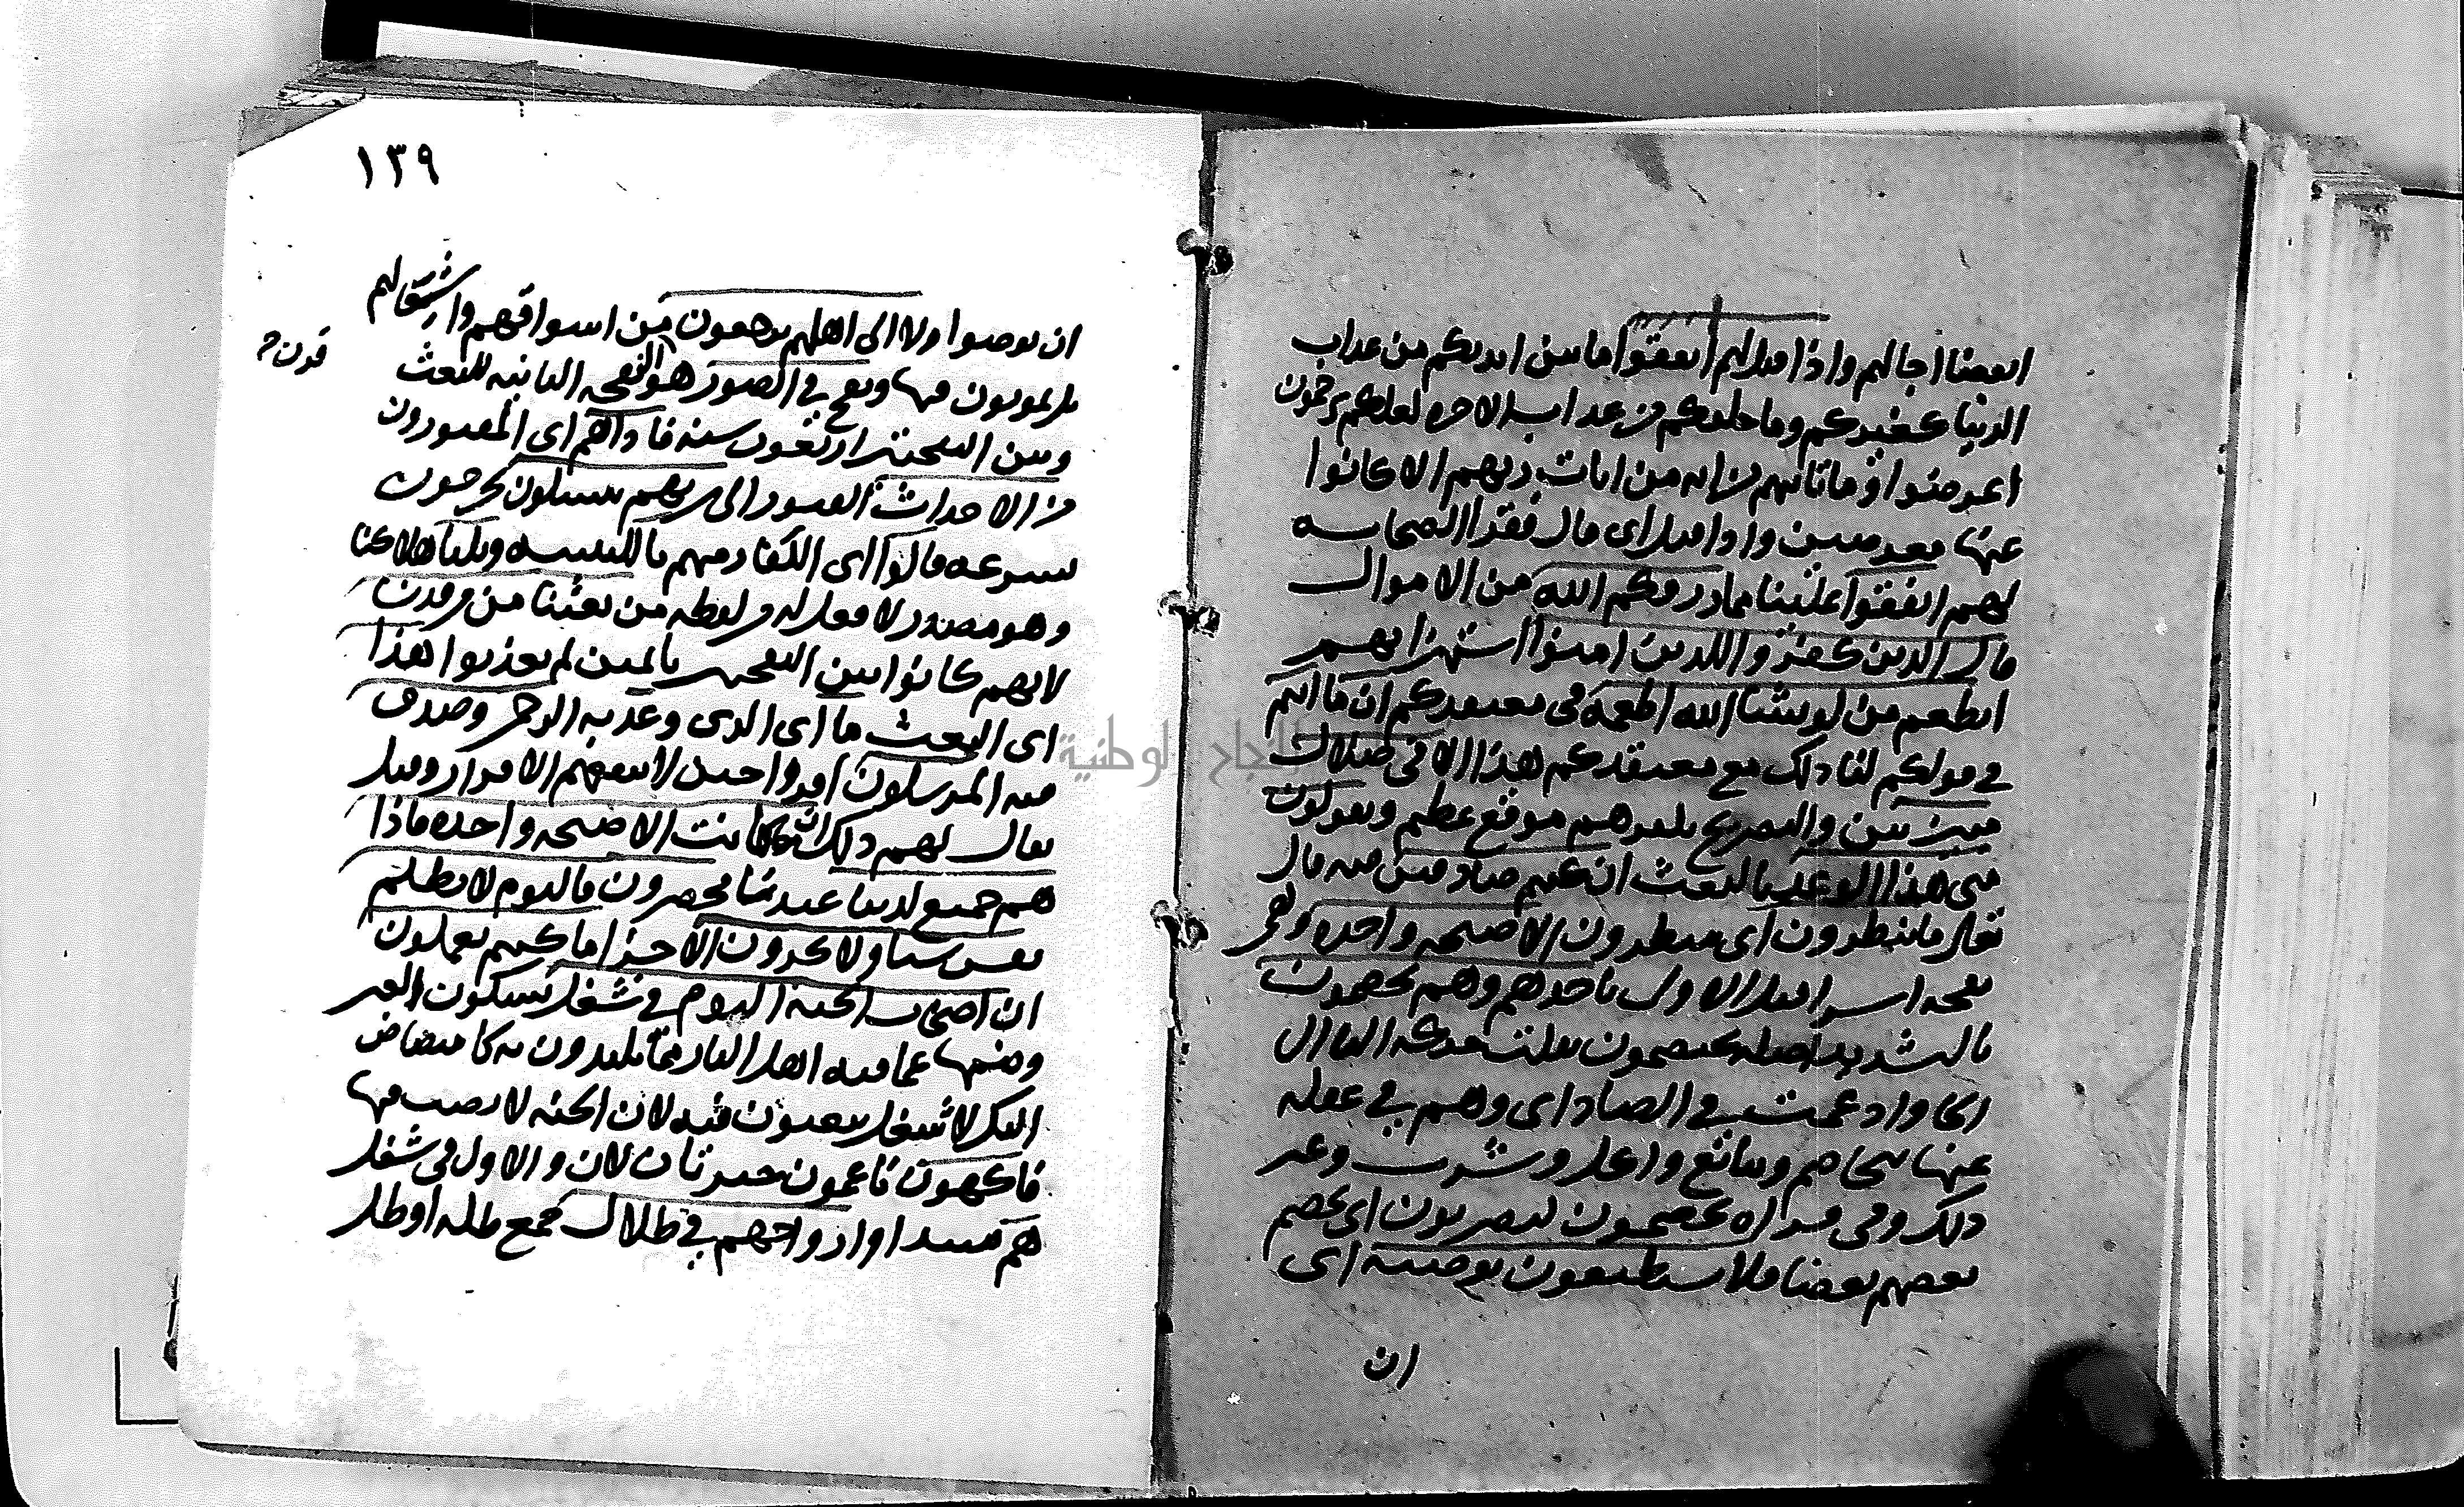 انقضا اجالهم واذا قيل لهم اتقوا ما بين ايديكم من عذاب
الدنيا كغيركم وما خلفكم من عذاب الاخره لعلكم ترحمون
اعرضوا وما تاتيهم من ايه من ايات ربهم الا كانوا
عنها معرضين واذا قيل اى قال فقرا الصحابه
لهم انفقوا علينا مما رزقكم الله من الاموال
قال الذين كفروا للذين امنوا استهزا بهم
انطعم من لو يشا الله اطعمه فى معتقدكم ان ما انتم
في قولكم لنا ذلك مع معتقدكم هذا الا فى ضلال
مبين بين والتصريح بكفرهم موقع عظيم ويقولون
متى هذا الوعد بالبعث ان كنتم صادقين فيه قال
تعالى ما ينظرون اى ينتظرون الا صيحه واحده وهى
نفخه اسرافيل الاولى تاخذهم وهم يخصمون
بالتشديد اصله يختصمون نقلت حركه التا الى
الخا وادغمت في الصاد اى وهم في غفله
عنها بتخاصم وتبايع واكل وشرب وغير
ذلك وفى قراه يخصمون كيضربون اى يخصم
بعضهم بعضا فلا يستطيعون توصيه اى
ان
١٣٩
ان يوصوا ولا الى اهلهم يرجعون من اسواقهم واشغالهم
بل يموتون فيها ونفخ في الصور هو النفخه الثانيه للبعث
وبين النفختين اربعون سنه فاذا هم اى المقبورون
من الاجداث القبور الى ربهم ينسلون يخرجون
بسرعه قالوا اى الكفار منهم يا للتنبيه ويلنا هلاكنا
وهو مصدر لا فعل له من لفظه من بعثنا من مرقدنا
لانهم كانوا بين النفختين نايمين لم يعذبوا هذا
اى البعث ما اى الذى وعد به الرحمن وصدق
فيه المرسلون اقروا حين لا ينفعهم الاقرار وقيل
يقال لهم ذلك ان كانت الا صيحه واحده فاذا
هم جميع لدينا عندنا محضرون فاليوم لا تظلم
نفس شيا ولا تجزون الا جزا ما كنتم تعملون
ان اصحاب الجنه اليوم في شغل بسكون الغين
وضمها عما فيه اهل النار مما يلتذون به كافتضاض
الابكار لا شغل يتعبون فيه لان الجنه لا نصب فيها
فاكهون ناعمون خبر ثان لان والاول فى شغل
هم مبتدا وازواجهم في ظلال جمع ظله او ظل